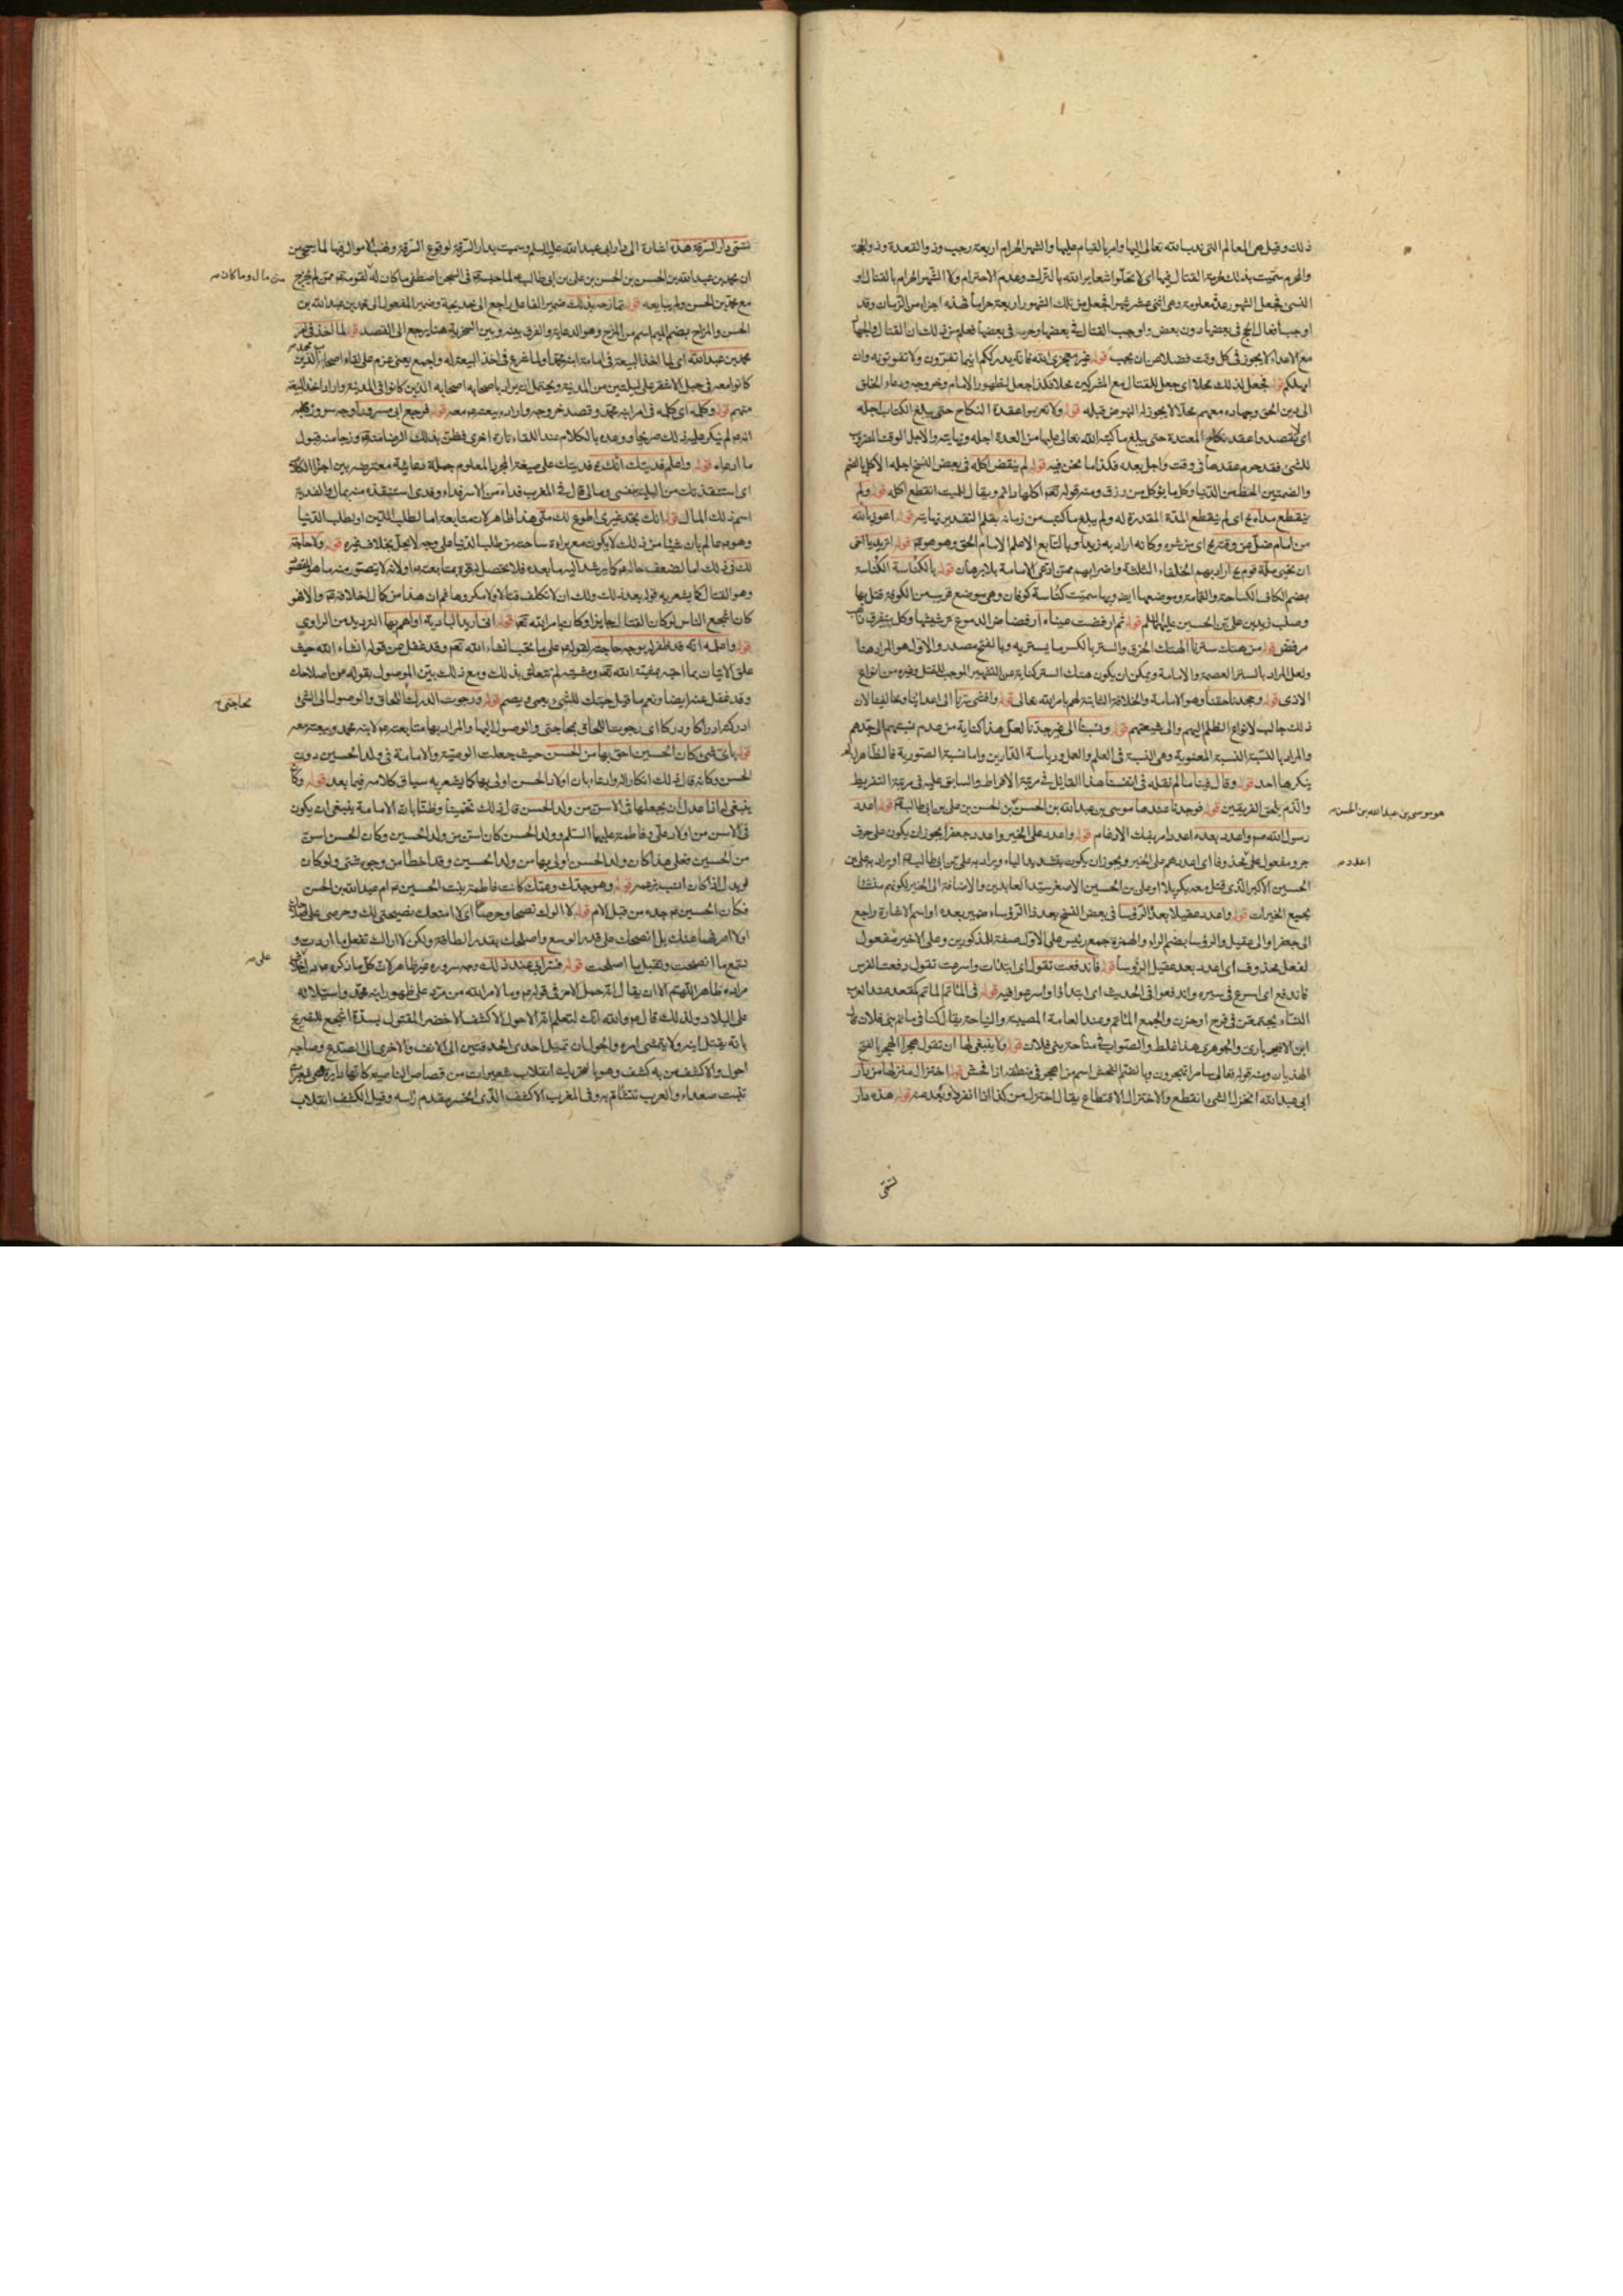 ذلك وقيل هى المعالم التى ندب الله تعالى اليها وامر بالقيام عليها والشهر الحرام اربعة رجب وذو القعدة وذو الحجة
والمحرم سميت بذلك لحرمة القتال فيها اى لا تحلوا شعاير الله بالترك وعدم الاحترام ولا الشهر الحرام بالقتال او
النسئ فجعل الشهور عدة معلومة وهى اثنى عشر شهرا فجعل من تلك الشهور اربعة حراما فهذه اجزاء من الزمان وقد
اوجب افعال الحج فى بعضها دون بعض واوجب القتال فى بعضها وحرمه فى بعضها فعلم من ذلك ان القتال والجهاد
مع الاعداء لا يجوز فى كل وقت فضلا عن ان يجب قوله غير معجزى الله فانه يدرككم اينما تفرون ولا تفوتونه وان
امهلكم قوله فجعل لذلك محلا اى جعل للقتال مع المشركين محلا فكذا جعل لظهور الامام وخروجه ودعاء الخلق
الى دين الحق وجهاده معهم محلا لا يجوز له النهوض قبله قوله ولا تعزموا عقدة النكاح حتى يبلغ الكتاب اجله
اى لا تقصدوا عقد نكاح المعتدة حتى يبلغ ما كتب الله تعالى عليها من العدة اجله ونهايته والاجل الوقت المضروب
للشئ فقد حرم عقدها فى وقت واحل بعده فكذا ما نحن فيه قوله لم ينقض اكله فى بعض النسخ اجله الاكل بالضم
والضمتين الحظ من الدنيا وكل ما يؤكل من رزق ومنه قوله تعه اكلها دائم ويقال للميت انقطع اكله قوله ولم
ينقطع مداه اى لم ينقطع المدة المقدرة له ولم يبلغ ما كتب من زمانه بقلم التقدير نهايته قوله اعوذ بالله
من امام ضل عن وقته اى من شره وكانه اراد به زيدا وبالتابع الاعلم الامام الحق وهو هو قوله اتريد يا اخى
ان تحيى ملة قوم اراد بهم الخلفاء الثلثة واضرابهم ممن ادعى الامامة بلا برهان قوله بالكناسة الكناسة
بضم الكاف الكساحة والقمامة وموضعها ايضا وبها سميت كناسة كوفان وهى موضع قريب من الكوفة قتل بها
وصلب زيد بن على بن الحسين عليهما السلم قوله ثم ارفضت عيناه ارفضاض الدموع ترشيشها وكل متفرق ذاهب
مرفض قوله من هتك سترنا الهتك الخرق والستر بالكسر ما يستر به وبالفتح مصدر والاول هو المراد هنا
ولعل المراد بالستر العصمة والامامة ويمكن ان يكون هتك الستر كناية عن التشهير الموجب للقتل وغيره من انواع
الاذى قوله وجحدنا حقنا وهو الامامة والخلافة الثابتة لهم بامر الله تعالى قوله وافشى سرنا الى اعدائنا ومخالفينا لان
ذلك جالب لانواع الظلم اليهم والى شيعتهم قوله ونسبنا الى غير جدنا لعل هذا كناية من عدم نسبتهم الى جدهم
والمراد بالنسبة النسبة المعنوية وهى النسبة فى العلم والعمل ورياسة الدارين واما نسبة الصورية فالظاهر انه لم
ينكرها احد قوله وقال فينا ما لم نقله فى انفسنا هذا القائل فى مرتبة الافراط والسابق عليه فى مرتبة التفريط
والذم يلحق الفريقين قوله فوجدنا عندها موسى بن عبدالله بن الحسن بن الحسن بن على بن ابى طالب قوله اعدد
رسول الله صم واعدد بعده اعدد امر بفك الادغام قوله واعدد على الخير واعدد جعفرا يجوز ان يكون على حرف
جر ومفعول على محذوفا اى اعددهم على الخير ويجوز ان يكون بتشديد الياء ويراد به على بن ابى طالب او يراد به على بن
الحسين الاكبر الذى قتل معه بكربلا او على بن الحسين الاصغر سيد العابدين والاضافة الى الخير لكونهم منشئا
بجميع الخيرات قوله واعدد عقيلا بعد الرؤسا فى بعض النسخ بعد ذا الرؤساء ضمير بعده او اسم الاشارة راجع
الى جعفر او الى عقيل والرؤسا بضم الراء والهمزة جمع رئيس على الاول صفة للمذكورين وعلى الاخير مفعول
لفعل محذوف اى اعدد بعد عقيل الرؤسا قوله فاندفعت تقول اى ابتدات واسرعت تقول دفعت الفرس
فاندفع اى اسرع فى سيره واندفعوا فى الحديث اى ابتداؤا واسرعوا فيه قوله فى المأتم المأتم كمقعد عند العرب
النساء يجتمعن فى فرح او حزن والجمع المآتم وعند العامة المصيبة والنياحة يقال كنا فى ماتم بنى فلان قال
ابن الانبارى والجوهرى هذا غلط والصواب فى مناحة بنى فلان قوله ولا ينبغى لها ان تقول هجرا الهجر بالفتح
الهذيان ومنه قوله تعالى سامرا تهجرون وبالضم الفحش اسم من اهجر فى منطقه اذا فحش قوله اختزال منزلها من دار
ابى عبدالله انخزل الشئ انقطع والاختزال الاقتطاع يقال اختزل من كذا اذا انفرد وبعد منه قوله هذه دار
هو موسى بن عبدالله بن الحسن
اعدد
تسمى
تسمى دار السرقة هذه اشارة الى دار ابى عبدالله عليه السلم وسميت بدار السرقة لوقوع السرقة ونهب الاموال فيها لما سيجئ من
ان محمد بن عبدالله بن الحسن بن الحسن بن على بن ابى طالب لما حبسه فى السجن اصطفى ما كان له لقومه ممن لم يخرج
مع محمد بن الحسن ولم يبايعه قوله تمازحه بذلك ضمير الفاعل راجع الى خديجة وضمير المفعول الى محمد بن عبدالله بن
الحسن والمزاح بضم الميم اسم من المزح وهو الدعابة والفرق بينه وبين السخرية هنا يرجع الى القصد قوله لما اخذ فى امر
محمد بن عبدالله اى لما اخذ البيعة فى امامة ابنه محمد او لما شرع فى اخذ البيعة له واجمع يعنى عزم على لقاء اصحابه الذين
كانوا معه فى جبل الاشقر على ليلتين من المدينة ويحتمل ان يراد باصحابه اصحابه الذين كانوا فى المدينة واراد اخذ البيعة
منهم قوله وكلمه اى كلمه فى امر ابنه محمد وقصد خروجه واراده بيعته معه قوله فرجع ابى مسرورا وجه سروره
انه لم ينكر عليه ذلك صريحا ووعده بالكلام عند اللقاء تارة اخرى فظن بذلك الرضا منه ورجا منه قبول
ما ادعاه قوله واعلم فديتك انك فديتك على صيغة المجرد المعلوم جملة دعائية معترضة بين اجزاء الكلام
اى استنقذتك من البلية بنفسى ومالى قال فى المغرب فداه من الاسر فداء وفدى استنقذه منه بمال والفدية
اسم ذلك المال قوله انك تجد غيرى اطوع لك منى هذا ظاهر لان متابعة اما لطلب الدين او لطلب الدنيا
وهو عالم بان شيئا من ذلك لا يكون مع براءة ساحته من طلب الدنيا على وجه لا يحل بخلاف غيره قوله ولا حاجة
لك فى ذلك اما لضعف حاله كما يرشد اليه ما بعده فلا تحصل له قوة بمتابعته او لانه لا يتصور منه ما هو المقصود
وهو القتال كما يشعر به قوله بعد ذلك ولك ان لا تكلف قتالا ولا مكروها ثم ان هذا من كمال اخلاقه والا فهو
كان اشجع الناس لو كان القتال جايزا وكان بامر الله تعه قوله انى اريد البادية او اهم بها الترديد من الراوى
علق الاتيان بما احبه بمشية الله تعه ومشيته لم تتعلق بذلك ومع ذلك بين الموصول بقوله من اصلاحك
وقد غفل عنه ايضا ونعم ما قيل حبك للشئ يعمى ويصم قوله ورجوت الدرك اللحاق والوصول الى الشئ
ادركته ادراكا ودركا اى رجوت اللحاق بحاجتى والوصول اليها والمراد بها متابعته لابنه محمد وبيعته معه
قوله باى شئ كان الحسين احق بها من الحسن حيث جعلت الوصية والامامة فى ولد الحسين دون
الحسن وكانه قال ذلك انكارا له وادعاء بان اولاد الحسن اولى بها كما يشعر به سياق كلامه فيما بعد قوله وكان
ينبغى لها اذا عدل ان يجعلها فى الاسن من ولد الحسن قال ذلك تخمينا وظنا بان الامامة ينبغى ان يكون
فى الاسن من اولاد على وفاطمة عليهما السلم وولد الحسن كان اسن من ولد الحسين وكان الحسن اسن
من الحسين فعلى هذا كان ولد الحسن اولى بها من ولد الحسين وقد اخطا من وجوه شتى ولو كان
قوله وهو جدك وعمك كانت فاطمة بنت الحسين ام عبدالله بن الحسن
فكان الحسين جده من قبل الام قوله لا آلوك نصحا وحرصا اى لا امنعك نصيحتى لك وحرصى على
بل انصحك على قدر الوسع واصلحك بقدر الطاقة ولكن لا اراك تفعل ما اردت و
تتبع ما انصحت وتقبل ما اصلحت قوله فسر ابى عند ذلك وجه سروره غير ظاهر لان كل ما ذكره
على البلاد ولذلك قال والله انك لتعلم انه الاحول الاكشف الاخضر المقتول بسدة اشجع للتصريح
بانه يقتل ابنه ولا يتمشى امره والحول ان تميل احدى الحدقتين الى الانف والاخرى الى الصدغ وصاحبه
احول والاكشف من به كشف وهو بالتحريك انقلاب شعيرات من قصاص الناصية كانها دايرة وهى شعيرات
تنبت صعداء والعرب تتشأم به وفى المغرب الاكشف الذى انحسر مقدم راسه وقيل الكشف انقلاب
من مال وما كان
بحاجتى
على